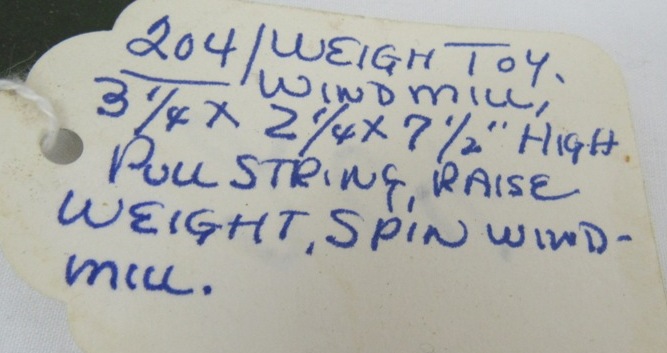 204/WEIGH TOY.
WINDMILL,
3 1/4 X 2 1/4 X 7 1/2" HIGH
PULL STRING, RAISE
WEIGHT, SPIN WIND-
MILL.